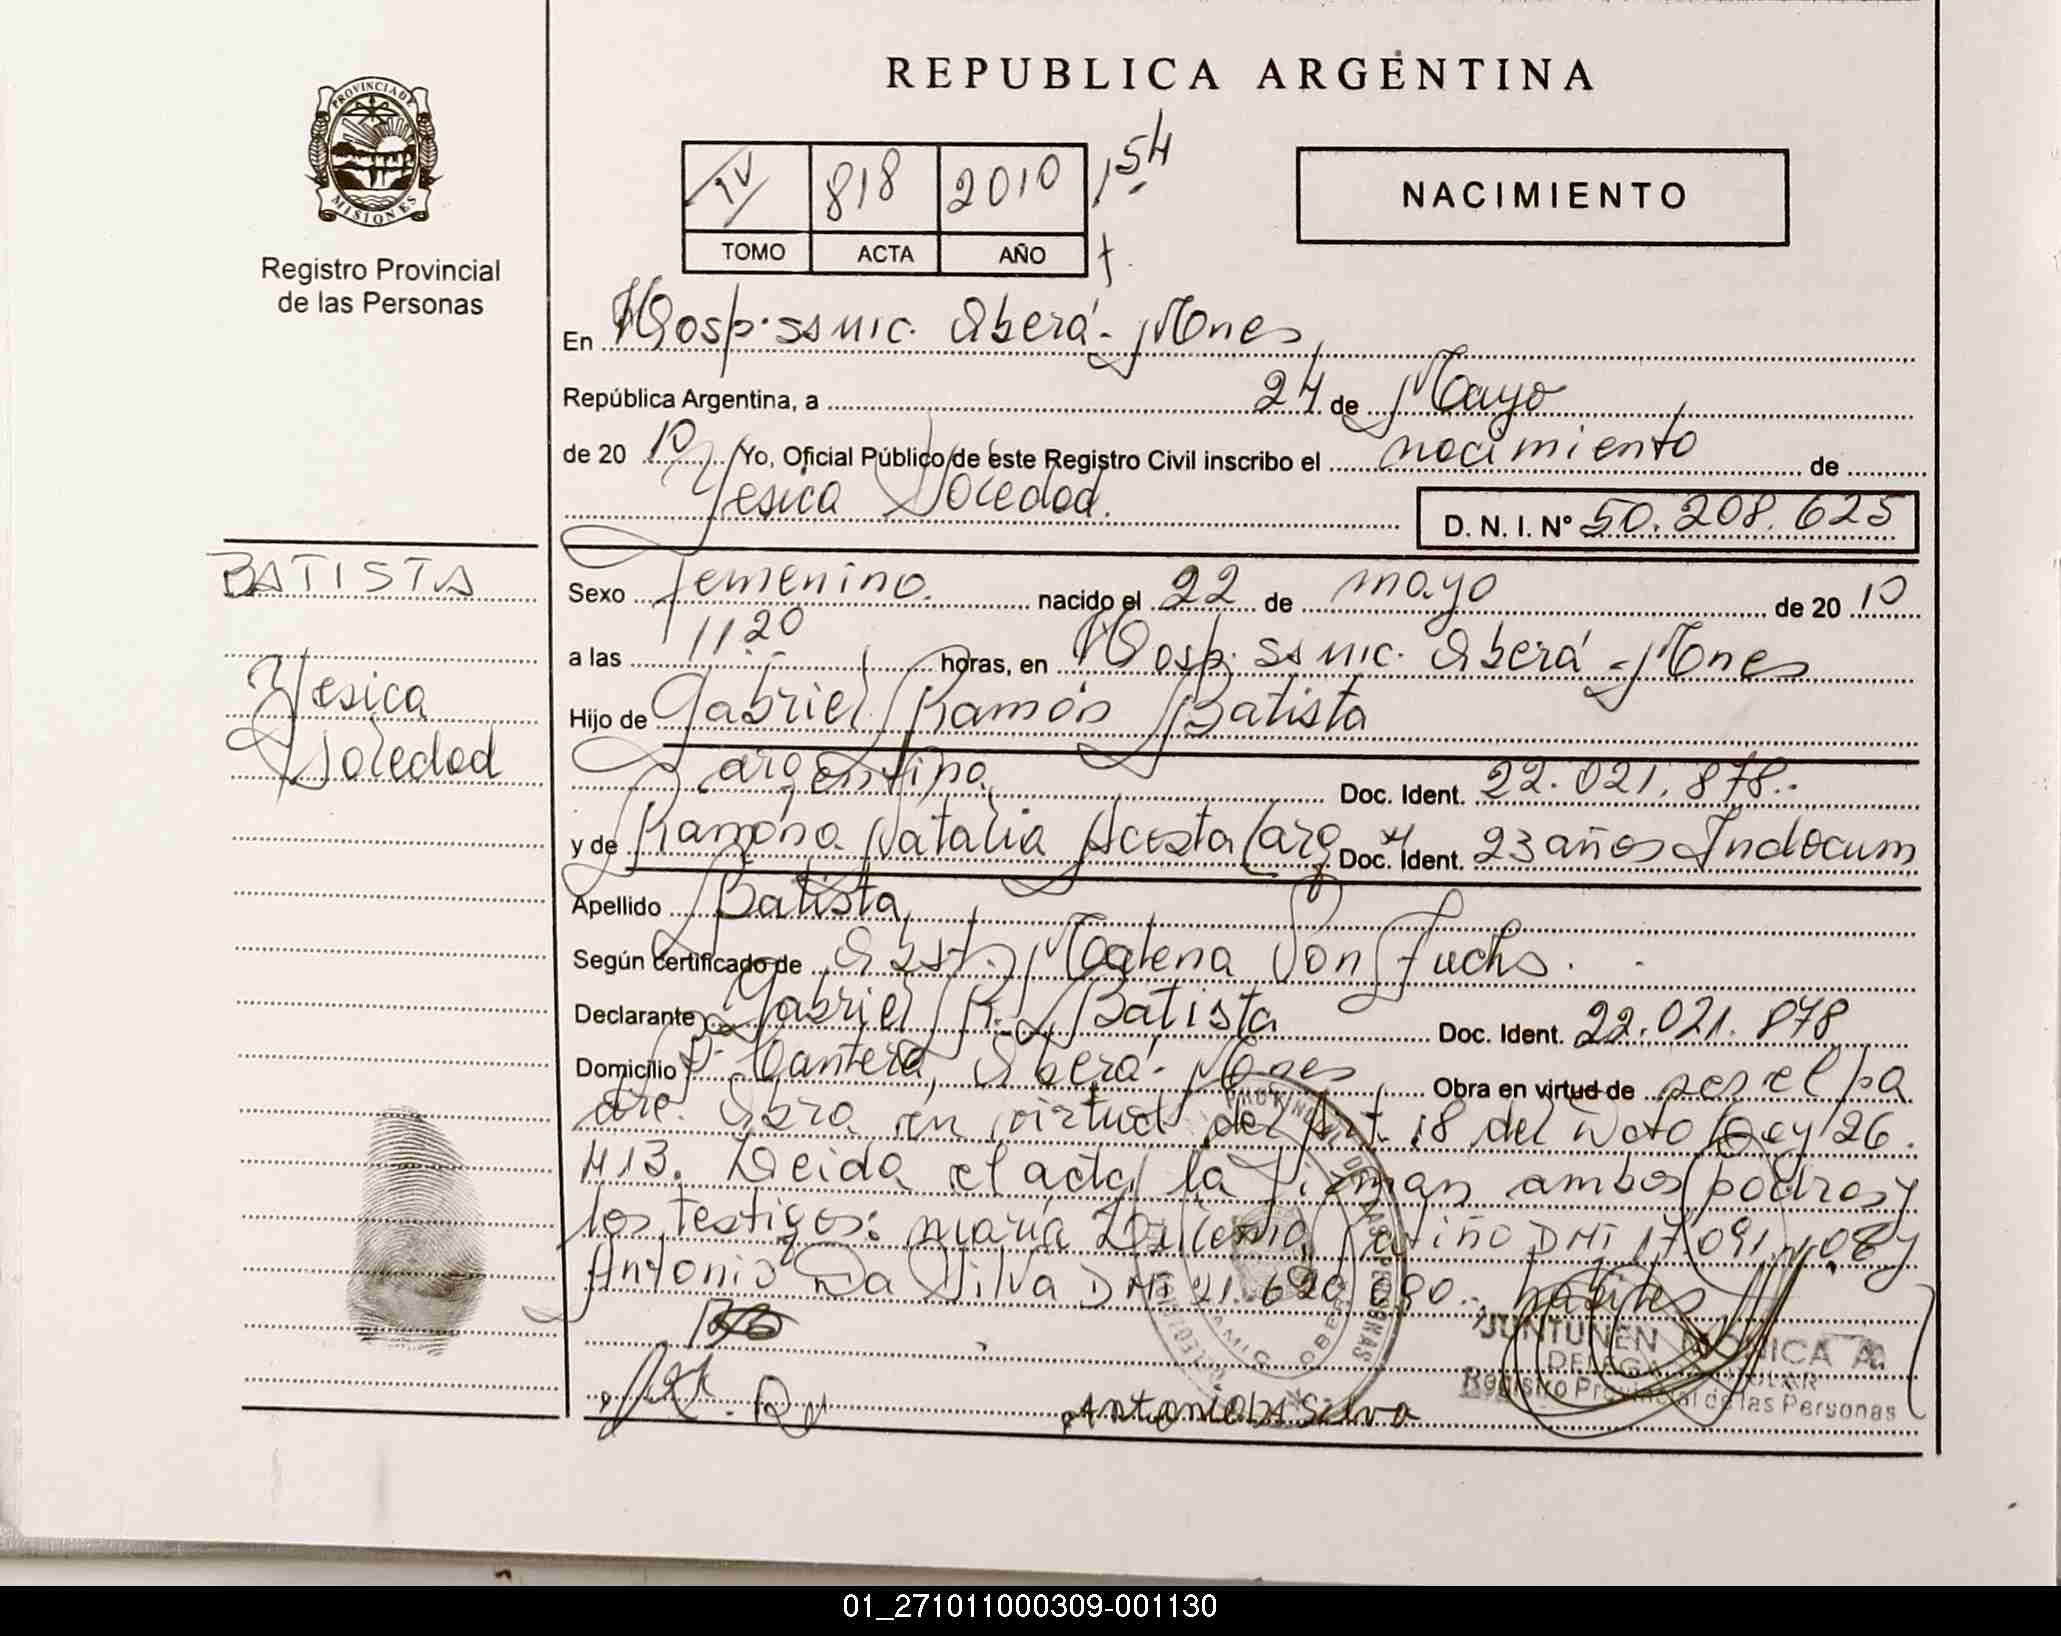 REPUBLICA ARGENTINA
PROVINCIA DE
MISIONES
Registro Provincial
de las Personas
IV 818 2010 154
TOMO ACTA AÑO
NACIMIENTO
En Hosp. ssmic. Oberá - Mnes
República Argentina, a 24 de Mayo
de 20 10 Yo, Oficial Público de este Registro Civil inscribo el nacimiento de
Yesica Soledad.
D. N. I. Nº 50.208.625
BATISTA
Yesica
Soledad
Sexo femenino. nacido el 22 de mayo de 20 10
a las 11 20 horas, en Hosp. ssmic. Oberá - Mnes
Hijo de Gabriel Ramón Batista
argentino Doc. Ident. 22.021.878.-
y de Ramona Natalia Acosta (arg Doc. Ident. 23 años Indocum
Apellido Batista
Según Certificado de Obst. Magdena Von Fuchs.
Declarante Gabriel R. Batista Doc. Ident. 22.021.878
Domicilio Cantera, Oberá - Mnes Obra en virtud de ser el pa
dre. Obra en virtud del Art. 18 del Dcto Ley 26.
413. Leida el acta la firman ambos padres y
los testigos: maría Patiño DNI 17.091. y
Antonio Da Silva DNI 21.620.690.- habiles
JUNTUNEN MONICA A.
Registro Provincial de las Personas
Antonio Da Silva
01_271011000309-001130